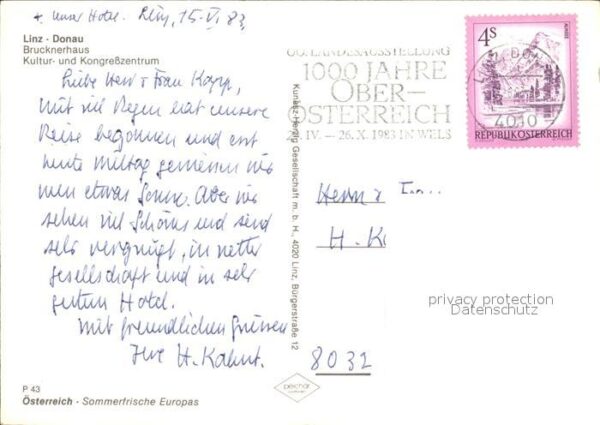 * unser Hotel. Linz, 15. V. 83
Linz - Donau
Brucknerhaus
Kultur- und Kongreßzentrum
Liebe Herr u Frau Kopp,
mit viel Regen hat unsere
Reise begonnen und erst
heute Mittag geniessen wir
nun etwas Sonne. Aber wir
sehen viel Schönes und sind
sehr vergnügt, in netter
Gesellschaft und in sehr
gutem Hotel.
Mit freundlichen Grüssen
Ihre H.
P 43
Österreich - Sommerfrische Europas
OÖ. LANDESAUSSTELLUNG
1000 JAHRE
OBER-
ÖSTERREICH
IV. - 26. X. 1983 IN WELS
4S
REPUBLIK ÖSTERREICH
4010
Kunstverlag Gesellschaft m. b. H., 4020 Linz, Bürgerstraße 12
Herrn u
H. K
8032
privacy protection
Datenschutz